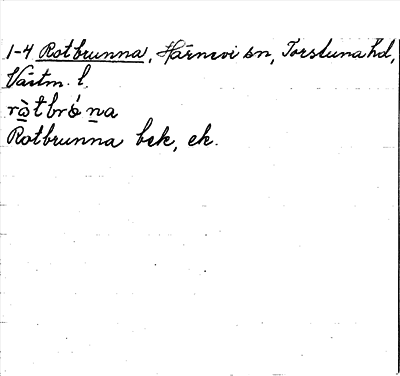 1-4 Rotbrunna, Härnevi sn, Torstuna hd,
Västm. l.
rò̲tbrǿn̲a
Rotbrunna bek, ek.